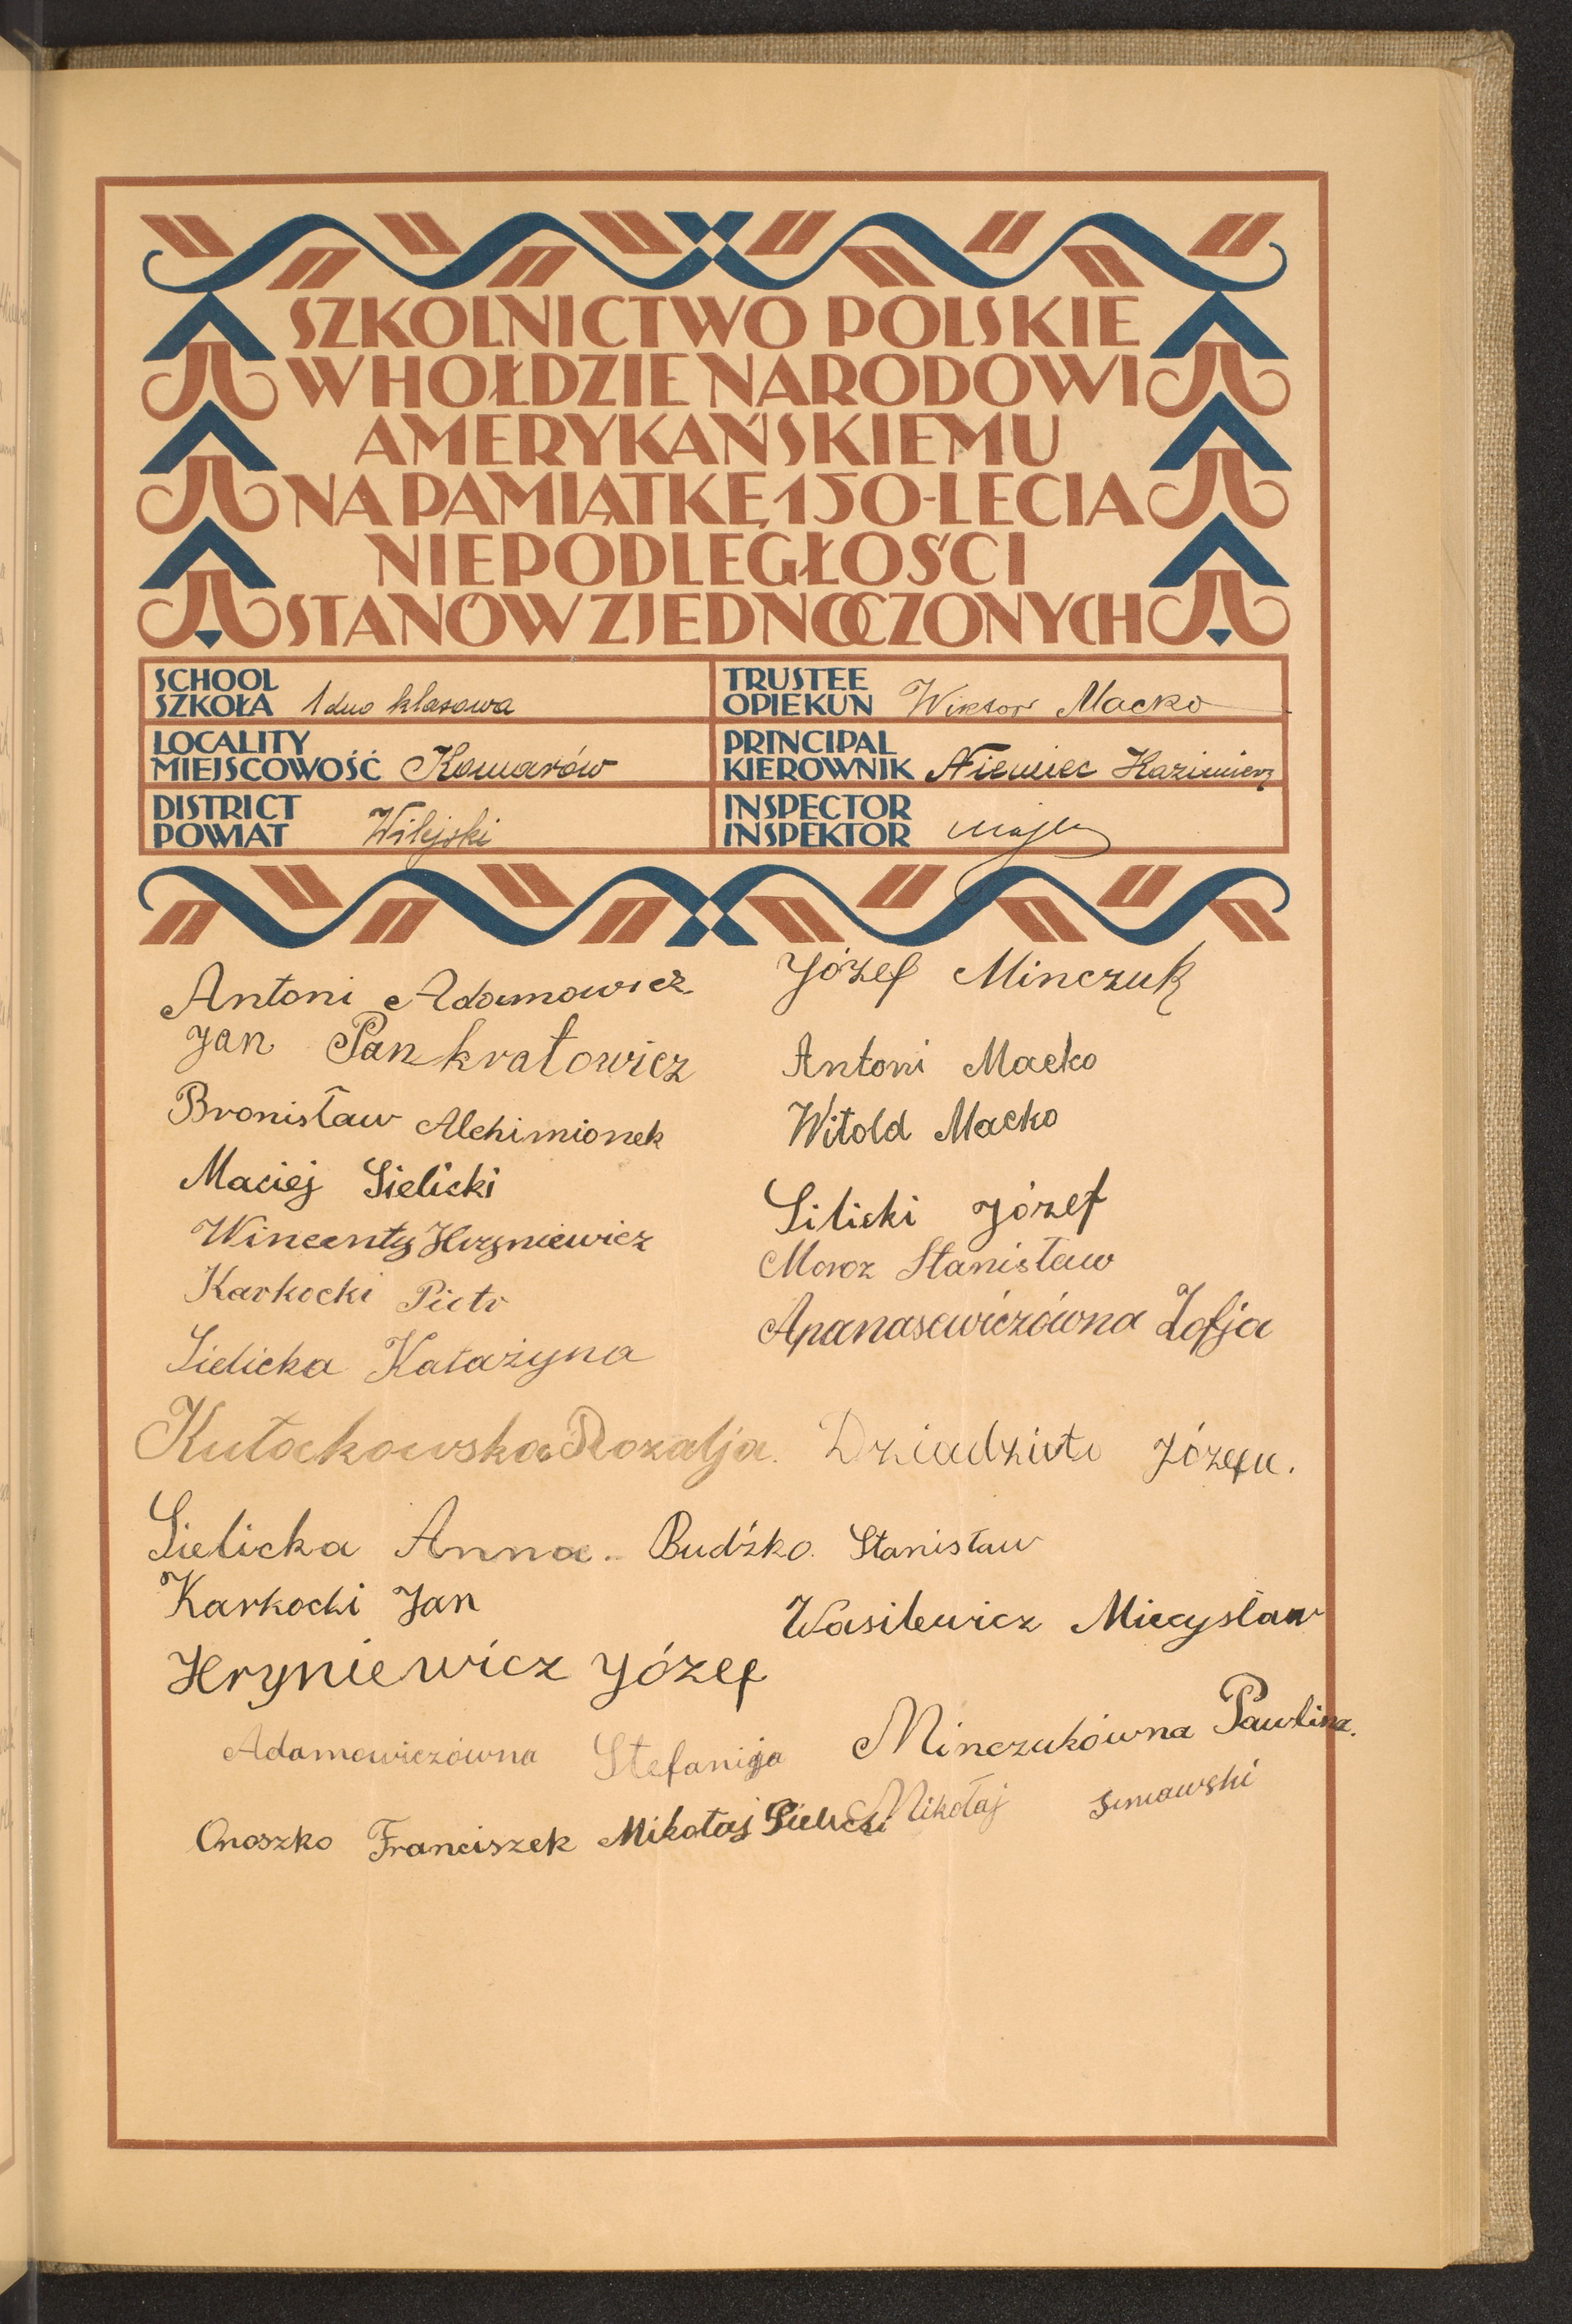 SZKOLNICTWO POLSKIE
W HOŁDZIE NARODOWI
AMERYKAŃSKIEMU
NA PAMIĄTKĘ 150-LECIA
NIEPODLEGŁOŚCI
STANÓW ZJEDNOCZONYCH
SCHOOL
SZKOŁA 1 duo klasowa
TRUSTEE
OPIEKUN Wiktor Macko
LOCALITY
MIEJSCOWOŚĆ Komarów
PRINCIPAL
KIEROWNIK Niemiec Kazimierz
DISTRICT
POWIAT Wilejski
INSPECTOR
INSPEKTOR
Antoni Adamowicz
Jan Pankratowicz
Bronisław Alchimionek
Maciej Sielicki
Wincenty Hryniewicz
Karkocki Piotr
Sielicka Katażyna
Kułackowska Rozalja.
Sielicka Anna.
Karkocki Jan
Hryniewicz Józef
Adamowiczówna Stefanija
Onoszko Franciszek
Mikołaj Sielicki
Józef Minczuk
Antoni Macko
Witold Macko
Silicki Józef
Moroz Stanisław
Apanasewiczówna Zofja
Józefa.
Budźko. Stanisław
Wasilewicz Miecysław
Minczukówna Paulina.
Mikołaj